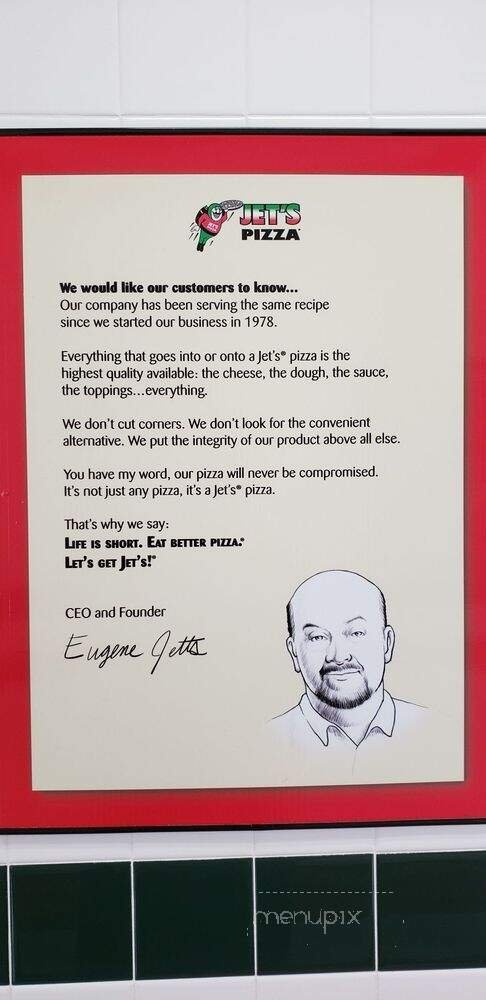 JET'S
PIZZA
We would like our customers to know...
Our company has been serving the same recipe
since we started our business in 1978.
Everything that goes into or onto a Jet's® pizza is the
highest quality available: the cheese, the dough, the sauce,
the toppings...everything.
We don't cut corners. We don't look for the convenient
alternative. We put the integrity of our product above all else.
You have my word, our pizza will never be compromised.
It's not just any pizza, it's a Jet's® pizza.
That's why we say:
LIFE IS SHORT. EAT BETTER PIZZA.®
LET'S GET JET'S!®
CEO and Founder
Eugene Jetts
menupix